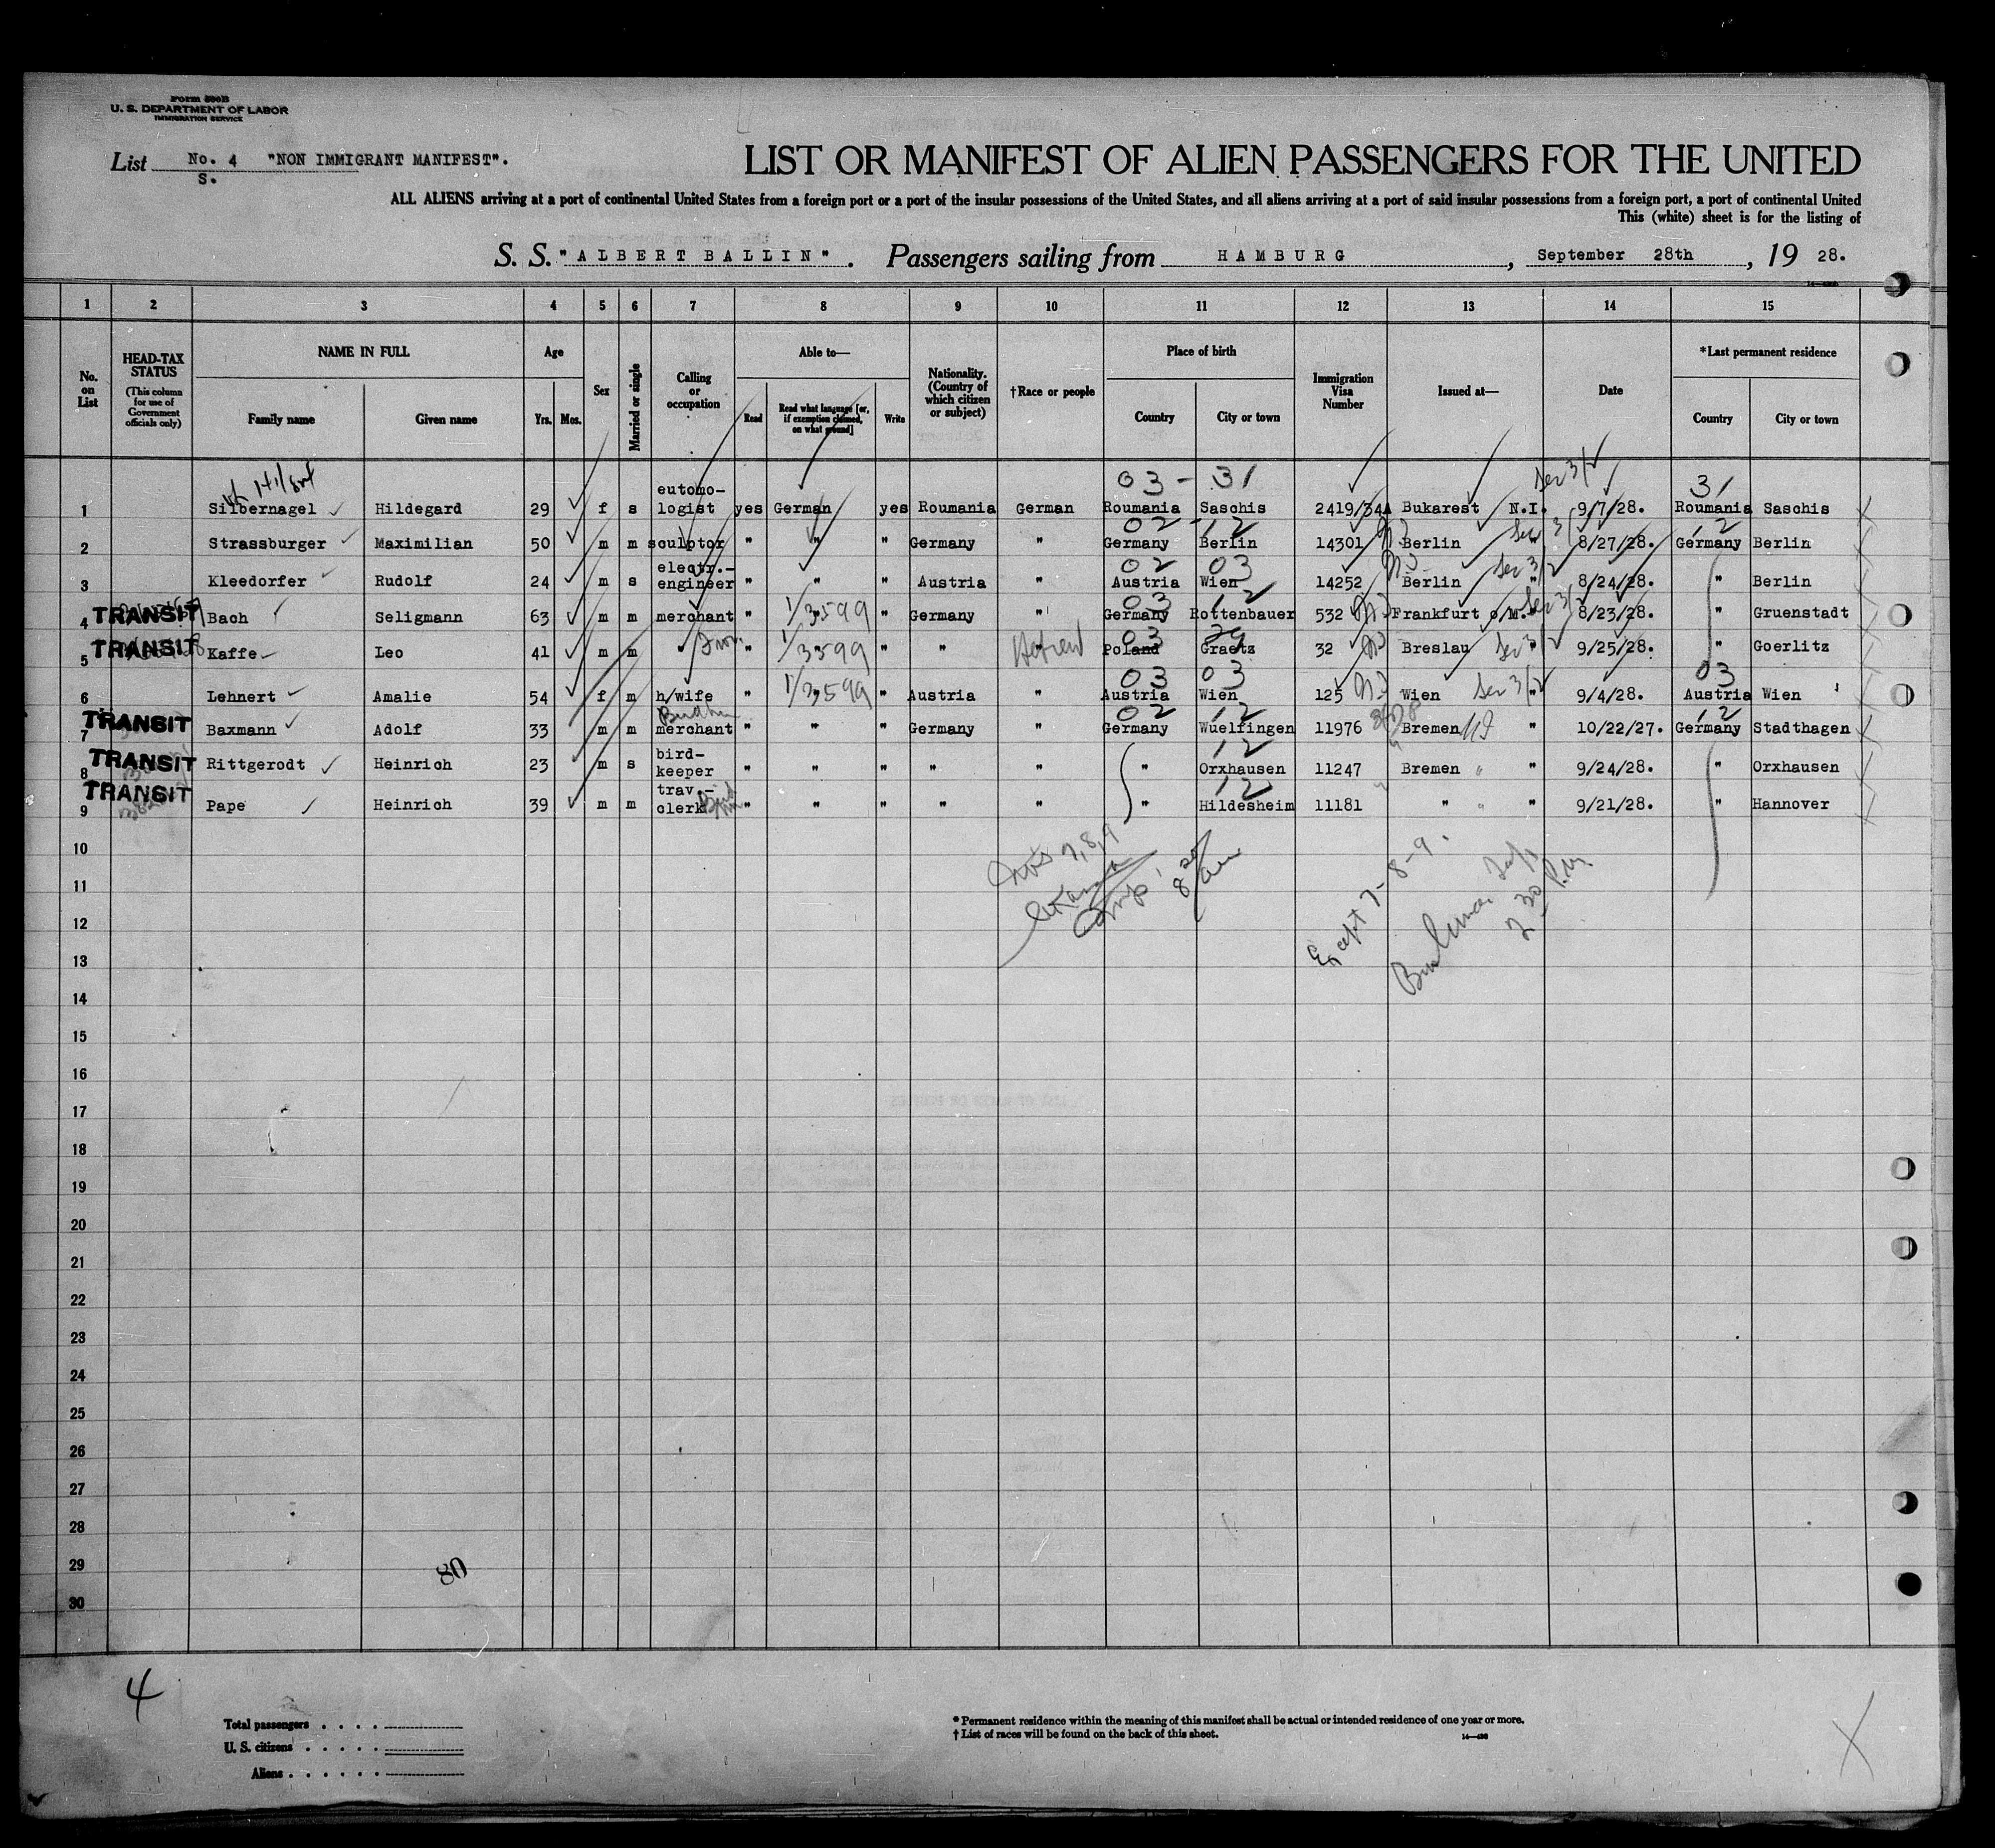 Form 500B
U. S. DEPARTMENT OF LABOR
IMMIGRATION SERVICE
List No. 4 "NON IMMIGRANT MANIFEST".
S.
LIST OR MANIFEST OF ALIEN PASSENGERS FOR THE UNITED
ALL ALIENS arriving at a port of continental United States from a foreign port or a port of the insular possessions of the United States, and all aliens arriving at a port of said insular possessions from a foreign port, a port of continental United
This (white) sheet is for the listing of
S. S. "ALBERT BALLIN". Passengers sailing from HAMBURG, September 28th, 19 28.
1 2 3 4 5 6 7 8 9 10 11 12 13 14 15
No. on List
HEAD-TAX STATUS (This column for use of Government officials only)
NAME IN FULL Family name Given name
Age Yrs. Mos.
Sex
Married or single
Calling or occupation
Able to— Read Read what language [or, if exemption claimed, on what ground] Write
Nationality. (Country of which citizen or subject)
†Race or people
Place of birth Country City or town
Immigration Visa Number
Issued at—
Date
*Last permanent residence Country City or town
03 - 31 31
1 Silbernagel Hildegard 29 f s eutomo-logist yes German yes Roumania German Roumania Saschis 2419/341 Bukarest N.I. 9/7/28. Roumania Saschis
02 - 12 12
2 Strassburger Maximilian 50 m m sculptor " " " Germany " Germany Berlin 14301 Berlin " 8/27/28. Germany Berlin
02 03
3 Kleedorfer Rudolf 24 m s electr.-engineer " " " Austria " Austria Wien 14252 Berlin " 8/24/28. " Berlin
03 12
4 TRANSIT Bach Seligmann 63 m m merchant " " 1/3599 " Germany " Germany Rottenbauer 532 Frankfurt o/M. " 8/23/28. " Gruenstadt
03 29
5 TRANSIT Kaffe Leo 41 m m " " " 1/3599 " " Hebrew Poland Graetz 32 Breslau " 9/25/28. " Goerlitz
03 03 03
6 Lehnert Amalie 54 f m h/wife " " 1/3599 " Austria " Austria Wien 125 Wien " 9/4/28. Austria Wien
02 12 12
7 TRANSIT Baxmann Adolf 33 m m merchant " " " Germany " Germany Wuelfingen 11976 Bremen " 10/22/27. Germany Stadthagen
12
8 TRANSIT Rittgerodt Heinrich 23 m s bird-keeper " " " " " " Orxhausen 11247 Bremen " 9/24/28. " Orxhausen
12
9 TRANSIT Pape Heinrich 39 m m trav.-clerk " " " " " " Hildesheim 11181 " " 9/21/28. " Hannover
Nos 7,8,9
Except 7-8-9.
2 30 P.M.
10
11
12
13
14
15
16
17
18
19
20
21
22
23
24
25
26
27
28
29
30
80
4
Total passengers
U. S. citizens
Aliens
* Permanent residence within the meaning of this manifest shall be actual or intended residence of one year or more.
† List of races will be found on the back of this sheet.
X